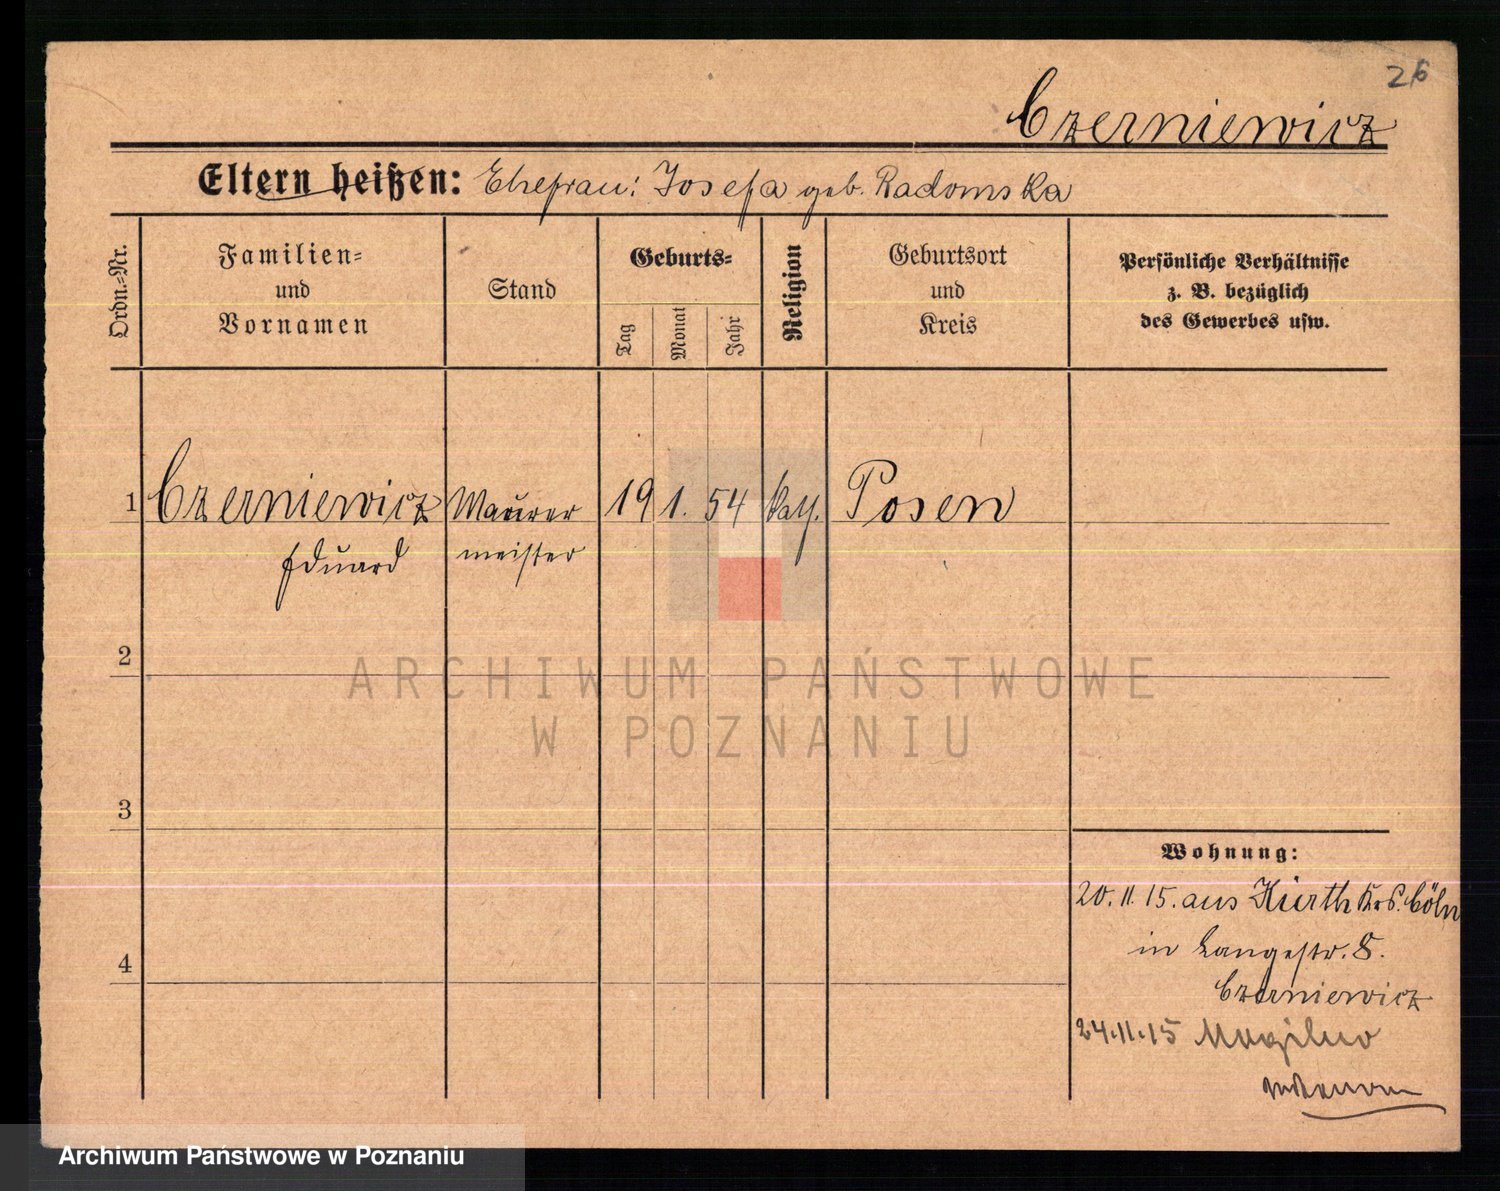 26
Czerniewicz
Eltern heißen: Ehefrau: Josefa geb. Radomska
Ordn.=Nr.
Familien=
und
Vornamen
Stand
Geburts=
Tag
Monat
Jahr
Religion
Geburtsort
und
Kreis
Persönliche Verhältnisse
z. B. bezüglich
des Gewerbes usw.
1 Czerniewicz Maurer 19 1. 54 kath. Posen
Eduard meister
2
3
4
Wohnung:
20. 11. 15. aus Hürth Krs. Cöln
in Langestr. 8.
Czerniewicz
24.11.15 Mogilno
unbekannt
ARCHIWUM PAŃSTWOWE
W POZNANIU
Archiwum Państwowe w Poznaniu